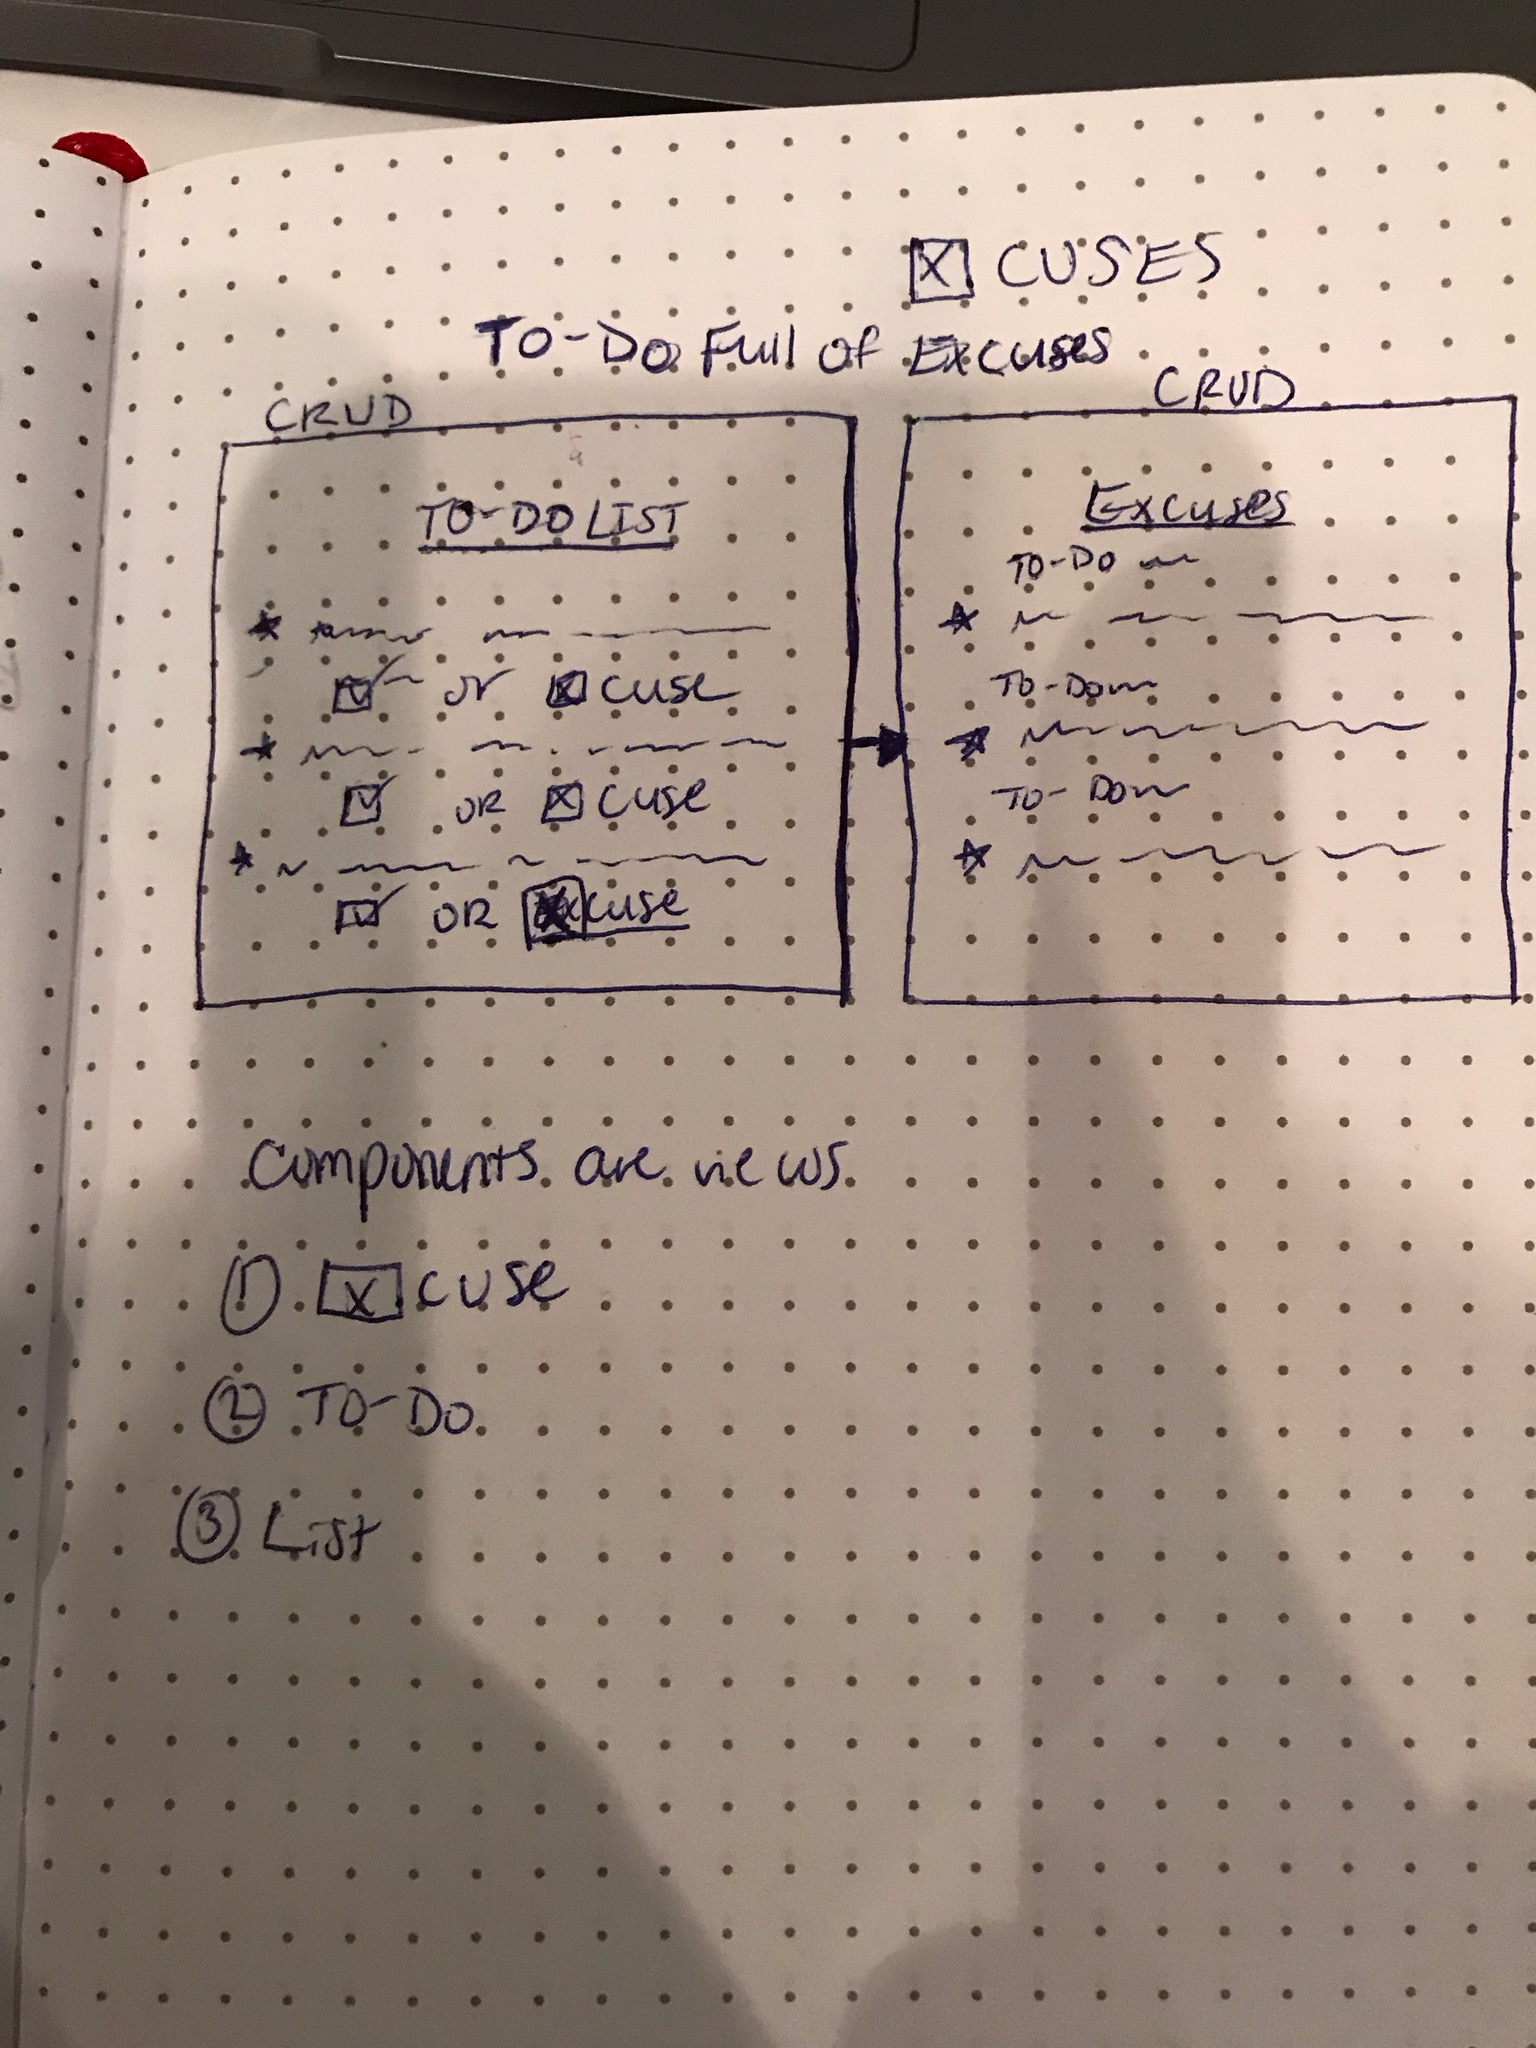 ☒ CUSES
TO-DO Full of Excuses
CRUD
TO-DO LIST
☑ or ☒ cuse
☑ OR ☒ cuse
☑ OR ☒cuse
CRUD
Excuses
TO-DO
TO-DO
TO-DO
Components are views
① ☒ cuse
② TO-DO
③ List